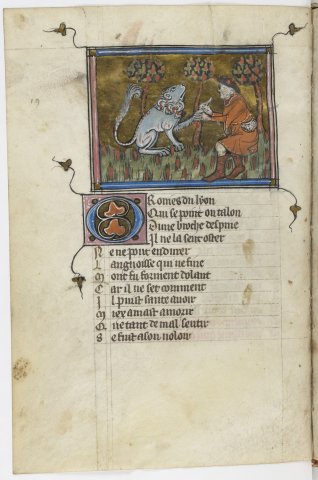 19
Romes du lyon
Qui se point ou talon
Dune broche despine
Il ne la seut oster
Ne ne pout endurer
Langhoisse qui ne fine
Mont fu forment dolant
Car il ne set comment
Il puist sante avoir
Miex amast amorir
Que tant de mal sentir
Se fust a son voloir